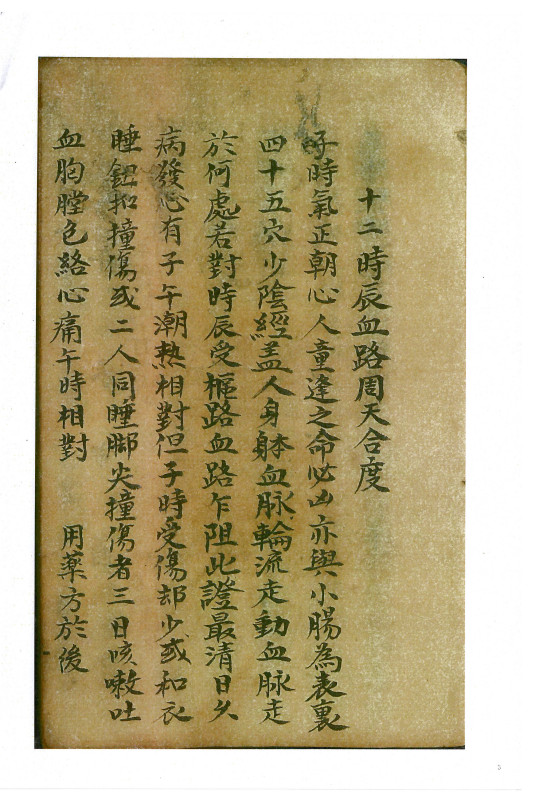 十二時辰血路周天合度
子時氣正朝心人童逢之命必凶亦與小腸為表裏
四十五穴少陰經盖人身躰血脉輪流走動血脉走
於何處若對時辰受樞路血路乍阻此證最清日久
病發心有子午潮熱相對但子時受傷却少或和衣
睡鈕扣撞傷或二人同睡脚尖撞傷者三日咳嗽吐
血胸膛色絡心痛午時相對 用藥方於後